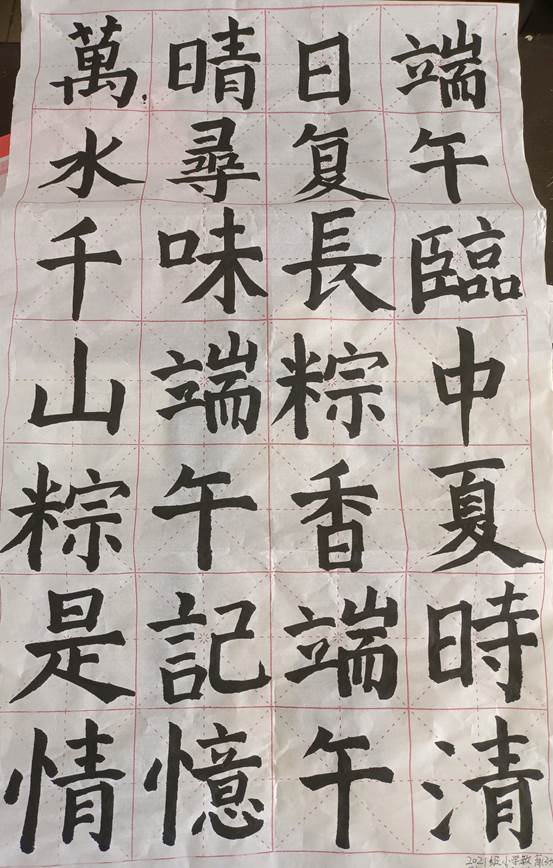 端午臨中夏時清
日复長粽香端午
晴尋味端午記憶
萬水千山粽是情
2021级小学教育